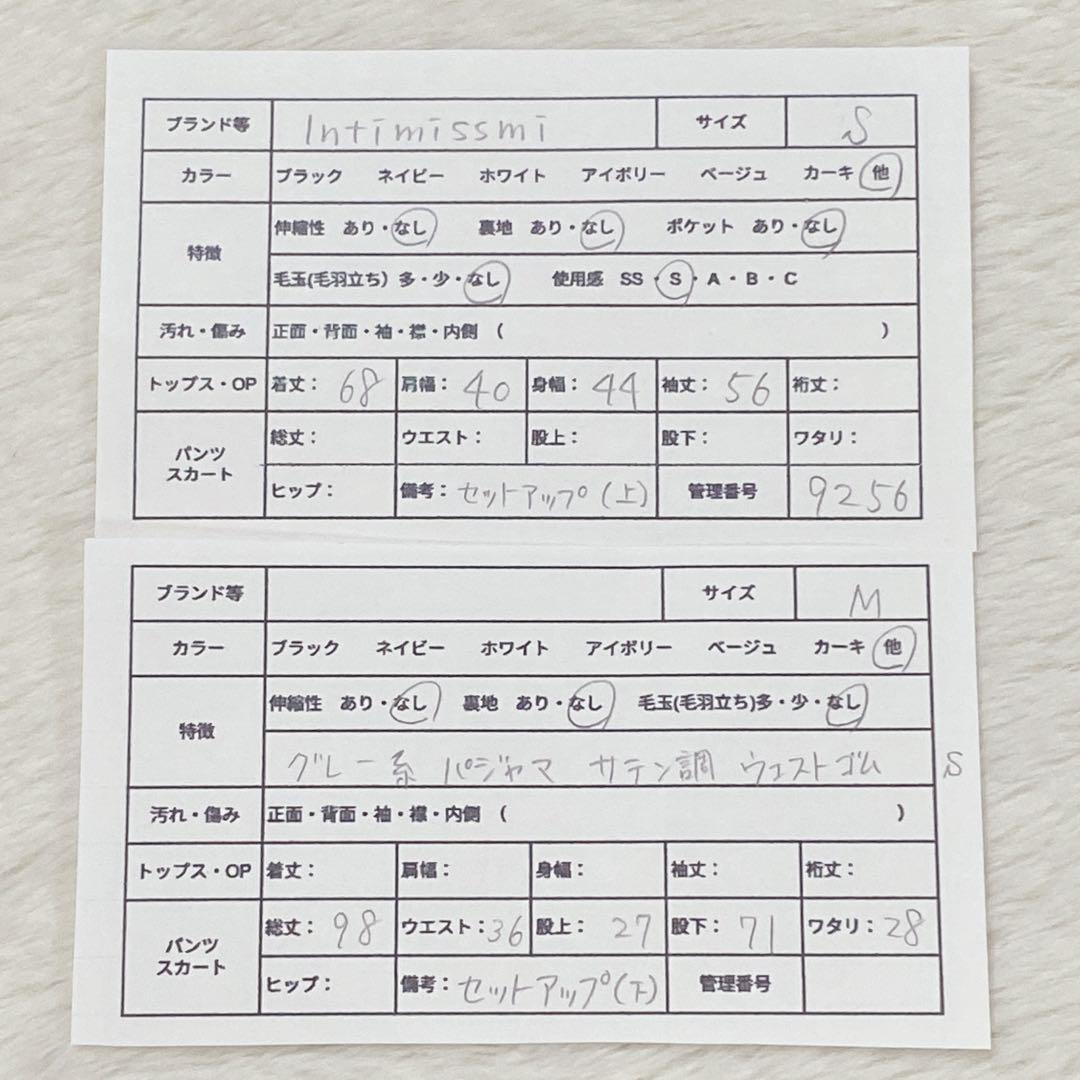 ブランド等 Intimissmi サイズ S
カラー ブラック ネイビー ホワイト アイボリー ベージュ カーキ 他
特徴 伸縮性 あり・なし 裏地 あり・なし ポケット あり・なし
毛玉(毛羽立ち) 多・少・なし 使用感 SS・S・A・B・C
汚れ・傷み 正面・背面・袖・襟・内側 ( )
トップス・OP 着丈: 68 肩幅: 40 身幅: 44 袖丈: 56 裄丈:
パンツ スカート 総丈: ウエスト: 股上: 股下: ワタリ:
ヒップ: 備考: セットアップ(上) 管理番号 9256
ブランド等 サイズ M
カラー ブラック ネイビー ホワイト アイボリー ベージュ カーキ 他
特徴 伸縮性 あり・なし 裏地 あり・なし 毛玉(毛羽立ち)多・少・なし
グレー系 パジャマ サテン調 ウエストゴム S
汚れ・傷み 正面・背面・袖・襟・内側 ( )
トップス・OP 着丈: 肩幅: 身幅: 袖丈: 裄丈:
パンツ スカート 総丈: 98 ウエスト: 36 股上: 27 股下: 71 ワタリ: 28
ヒップ: 備考: セットアップ(下) 管理番号